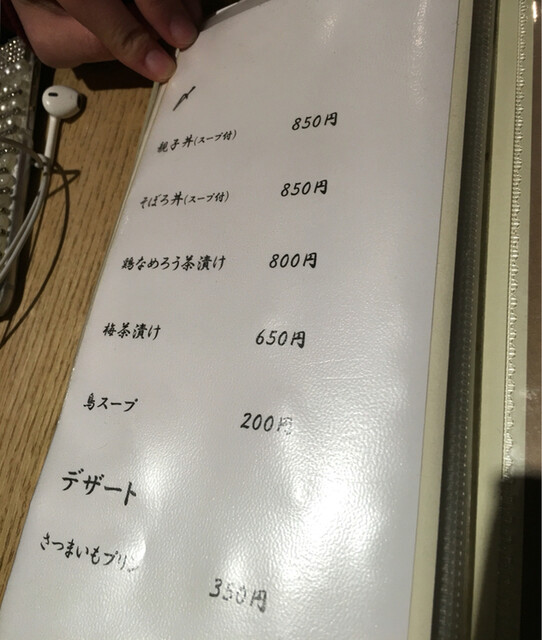 〆
親子丼(スープ付) 850円
そぼろ丼(スープ付) 850円
鶏なめろう茶漬け 800円
梅茶漬け 650円
鳥スープ 200円
デザート
さつまいもプリン 350円